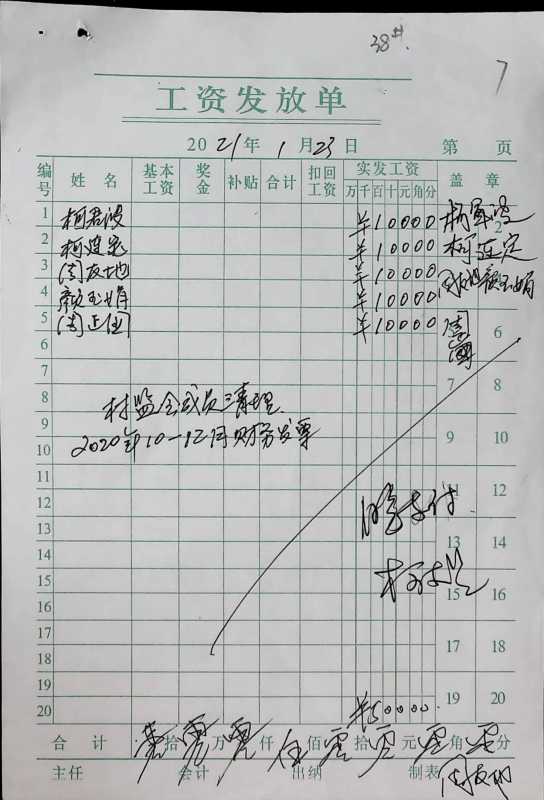 38#
7
工资发放单
2021年1月23日 第 页
编号 姓名 基本工资 奖金 补贴 合计 扣回工资 实发工资 万千百十元角分 盖章
1 柯君波 ¥10000
2 柯建宏 ¥10000 柯连定
3 周友地 ¥10000 周友地 颜玉娟
4 颜玉娟 ¥10000
5 周正国 ¥10000
6 6
7 7 8
8 村监会成员清理
9 2020年10-12月财务发票 9 10
10
11 12
12
13 同意支付 13 14
14
15 15 16
16
17 17 18
18
19 19 20
20 ¥50000
合计 拾 万 仟 伍佰 零拾 零元 零角 零分
主任 会计 出纳 制表 周友地